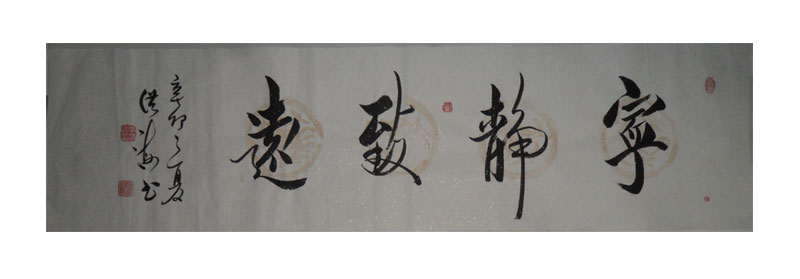 寧靜致遠
辛卯之夏
洪海书